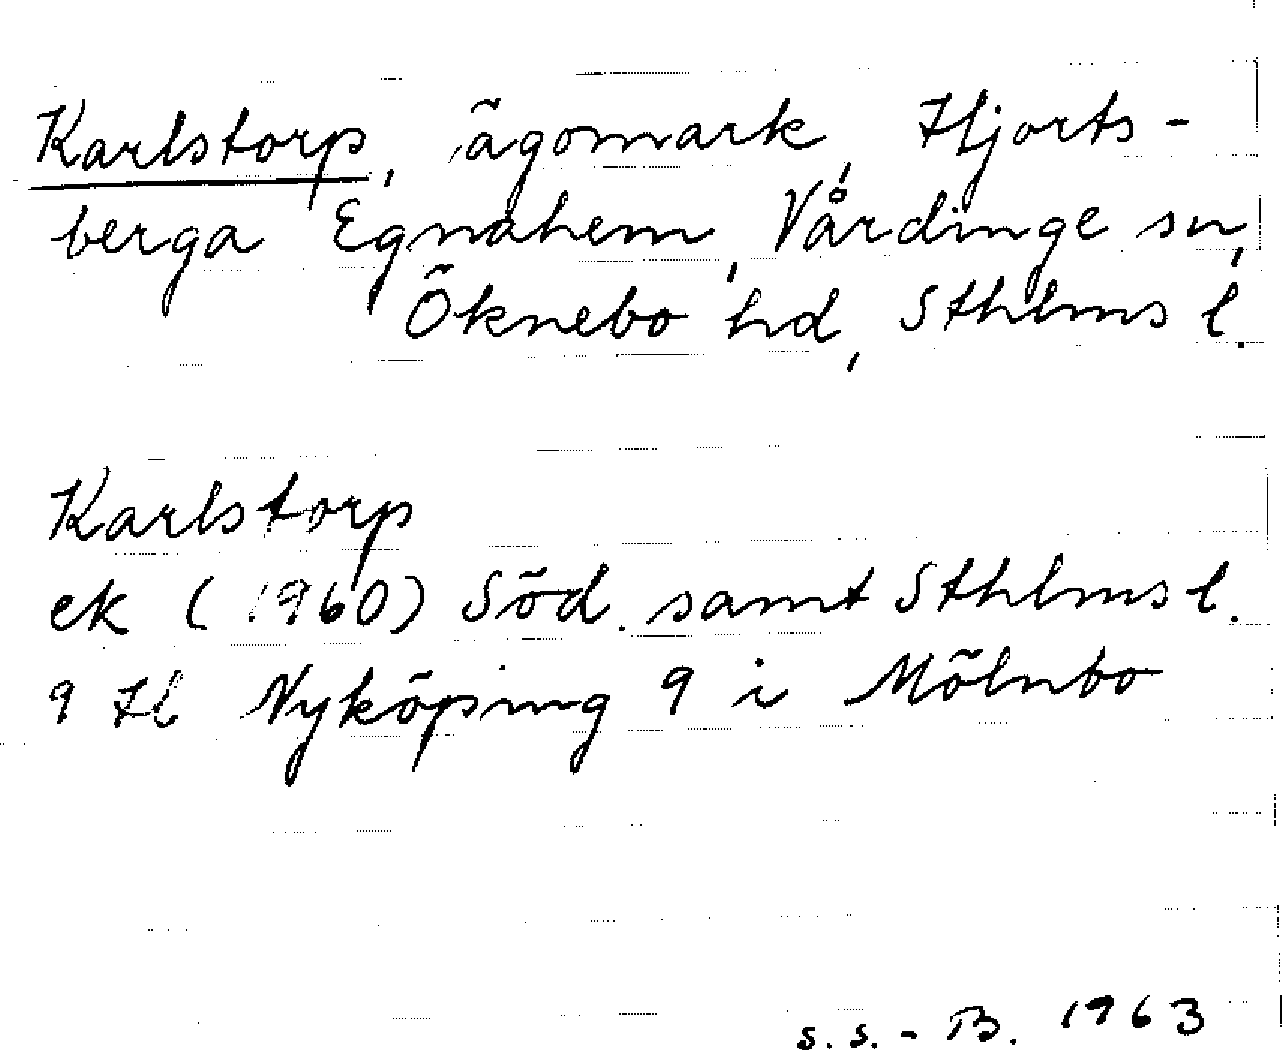 Karlstorp, ägomark, Hjorts-
berga Egnahem, Vårdinge sn,
Öknebo hd, Sthlms l.
Karlstorp
ek (1960) Söd. samt Sthlms l.
9 Hb Nyköping 9 i Mölnbo
s.s.-B. 1963